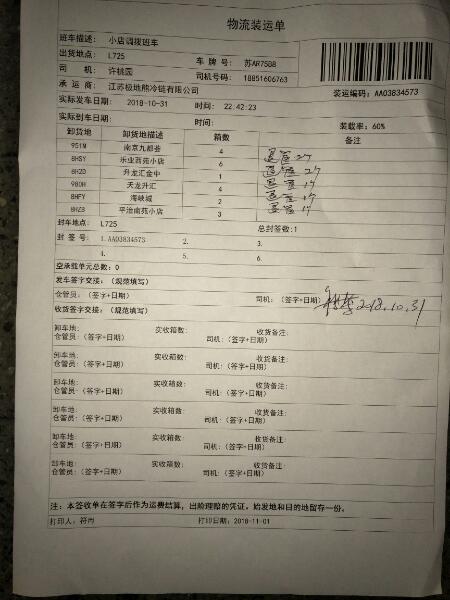 物流装运单
班车描述: 小店调拨班车
出货地点: L725 车 牌 号: 苏AR75B8
司 机: 许桃园 司机号码: 18851606763
承 运 商: 江苏极地熊冷链有限公司 装运编码: AA03834573
实际发车日期: 2018-10-31 时间: 22.42:23
实际到车日期: 时间: 装载率: 60%
卸货地 卸货地描述 箱数 备注
951N 南京九都荟 4
8HSY 乐业西苑小店 6
8HZD 升龙汇金中 1
980H 天龙升汇 4
8HFY 海峡城 2
8HZ8 平治南苑小店 3
封车地点: L725 总封签数:1
封 签 号: 1.AA03834573 2. 3.
4. 5. 6.
空承载单元总数: 0
发车签字交接: (规范填写)
仓管员: (签字+日期) 司机: (签字+日期) 2018.10.31
收货签字交接: (规范填写)
卸车地: 实收箱数: 收货备注:
仓管员: (签字+日期) 司机: (签字+日期)
卸车地: 实收箱数: 收货备注:
仓管员: (签字+日期) 司机: (签字+日期)
卸车地: 实收箱数: 收货备注:
仓管员: (签字+日期) 司机: (签字+日期)
卸车地: 实收箱数: 收货备注:
仓管员: (签字+日期) 司机: (签字+日期)
卸车地: 实收箱数: 收货备注:
仓管员: (签字+日期) 司机: (签字+日期)
卸车地: 实收箱数: 收货备注:
仓管员: (签字+日期) 司机: (签字+日期)
注: 本签收单在签字后作为运费结算, 出险理赔的凭证。始发地和目的地留存一份。
打印人: 符雨 打印日期: 2018-11-01